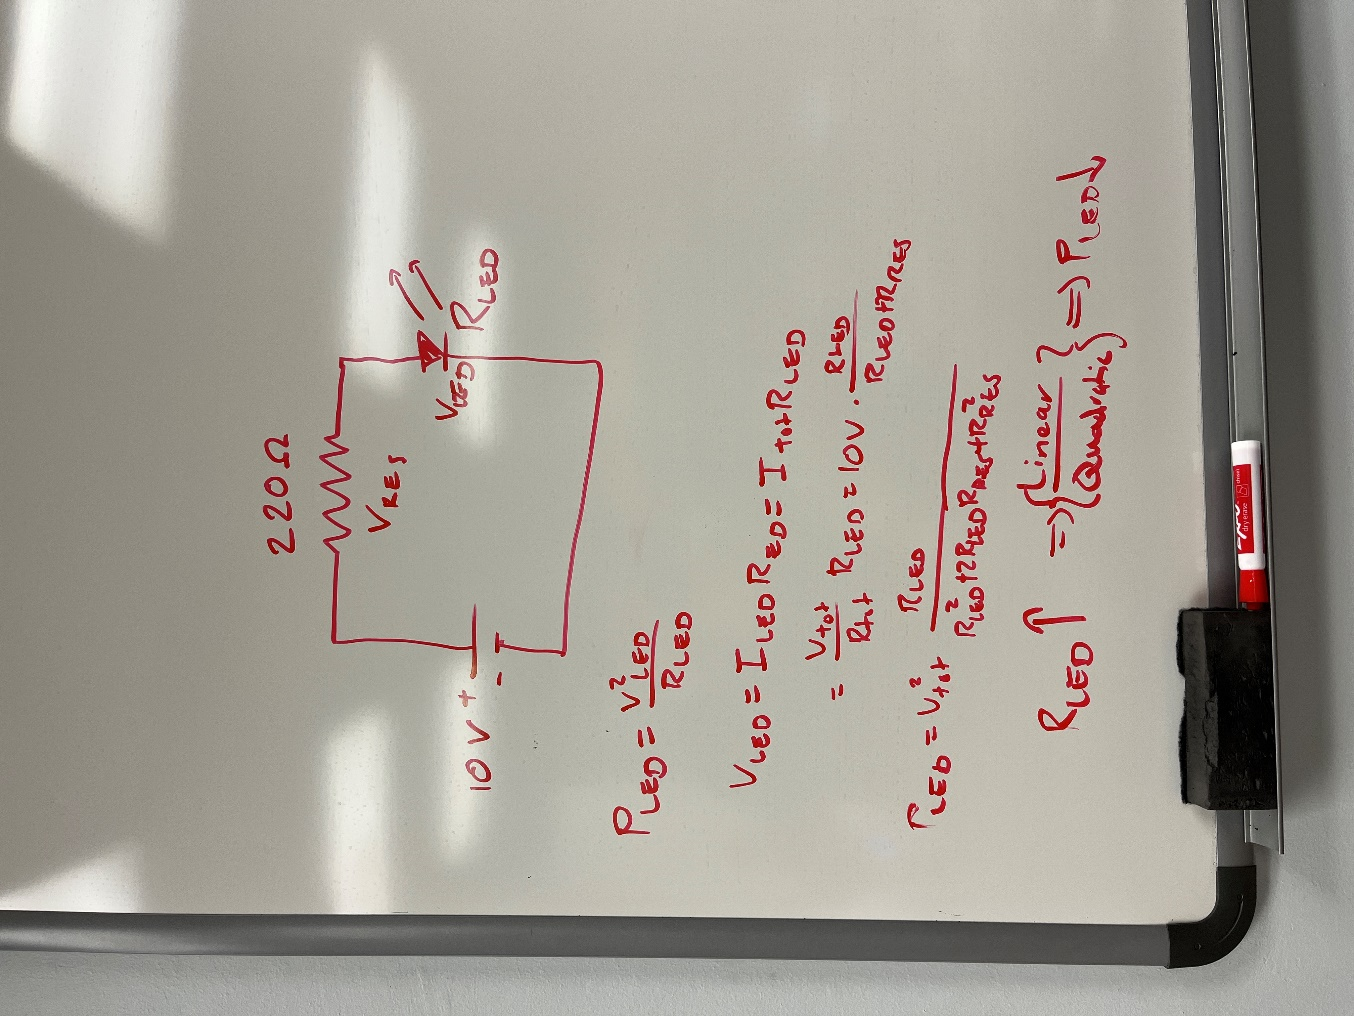 220Ω
V_RES
10V + -
V_LED R_LED
P_LED = V²_LED / R_LED
V_LED = I_LED R_ED = I_tot R_LED
= V_tot / R_tot R_LED = 10V · R_LED / R_LED+R_RES
P_LED = V²_tot R_LED / R²_LED+2R_LED R_RES+R²_RES
R_LED ↑ ⇒ {Linear / Quadratic} ⇒ P_LED ↓
dry erase